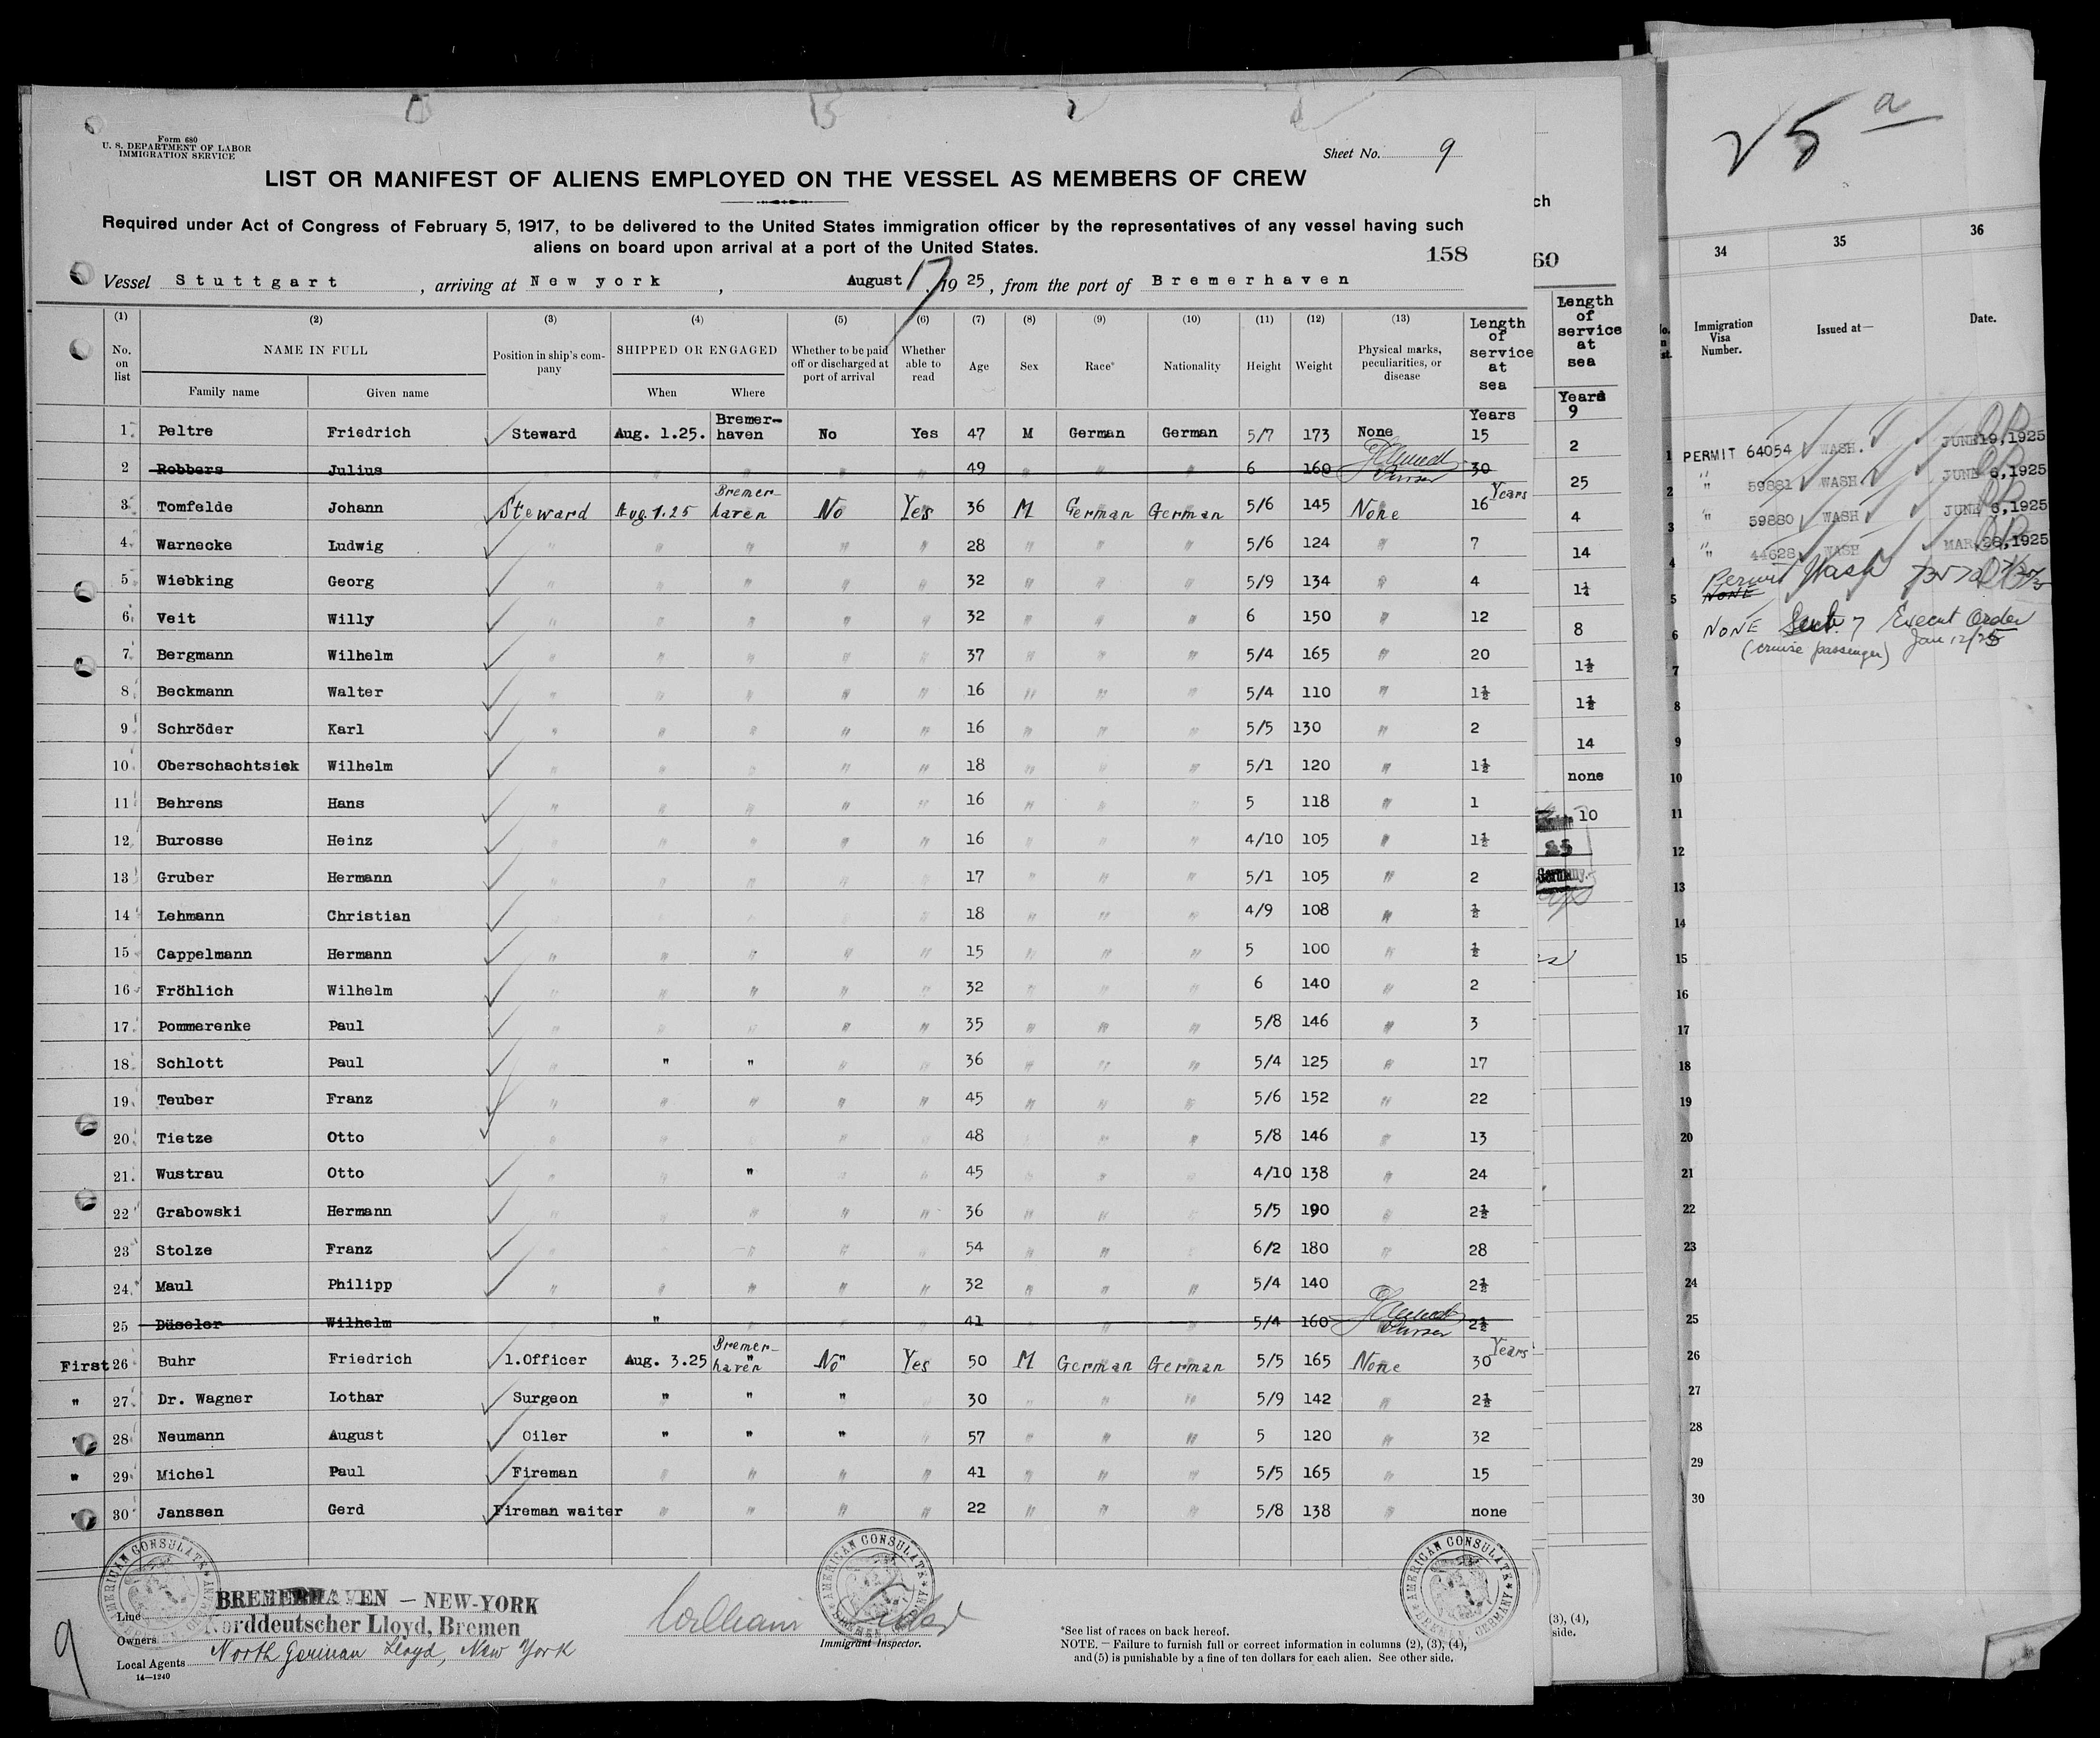 Form 680
U. S. DEPARTMENT OF LABOR
IMMIGRATION SERVICE
Sheet No. 9
LIST OR MANIFEST OF ALIENS EMPLOYED ON THE VESSEL AS MEMBERS OF CREW
Required under Act of Congress of February 5, 1917, to be delivered to the United States immigration officer by the representatives of any vessel having such
aliens on board upon arrival at a port of the United States.
158
Vessel Stuttgart, arriving at New york, August 17, 1925, from the port of Bremerhaven
(1) (2) (3) (4) (5) (6) (7) (8) (9) (10) (11) (12) (13)
No. on list NAME IN FULL Family name Given name Position in ship's company SHIPPED OR ENGAGED When Where Whether to be paid off or discharged at port of arrival Whether able to read Age Sex Race* Nationality Height Weight Physical marks, peculiarities, or disease Length of service at sea
Years
1 Peltre Friedrich Steward Aug. 1.25. Bremer-haven No Yes 47 M German German 5/7 173 None 15
2 Robbers Julius " " " " 49 " " " 6 160 Purser 30
3 Tomfelde Johann Steward Aug 1.25 Bremer-haven No Yes 36 M German German 5/6 145 None 16 Years
4 Warnecke Ludwig " " " " " 28 " " " 5/6 124 " 7
5 Wiebking Georg " " " " " 32 " " " 5/9 134 " 4
6 Veit Willy " " " " " 32 " " " 6 150 " 12
7 Bergmann Wilhelm " " " " " 37 " " " 5/4 165 " 20
8 Beckmann Walter " " " " " 16 " " " 5/4 110 " 1½
9 Schröder Karl " " " " " 16 " " " 5/5 130 " 2
10 Oberschachtsiek Wilhelm " " " " " 18 " " " 5/1 120 " 1½
11 Behrens Hans " " " " " 16 " " " 5 118 " 1
12 Burosse Heinz " " " " " 16 " " " 4/10 105 " 1½
13 Gruber Hermann " " " " " 17 " " " 5/1 105 " 2
14 Lehmann Christian " 18 " " " 4/9 108 " ½
15 Cappelmann Hermann " " " " " 15 " " " 5 100 " ½
16 Fröhlich Wilhelm " " " " " 32 " " " 6 140 " 2
17 Pommerenke Paul " " " " " 35 " " " 5/8 146 " 3
18 Schlott Paul " " " " " 36 " " " 5/4 125 " 17
19 Teuber Franz " " " " " 45 " " " 5/6 152 " 22
20 Tietze Otto " " " " " 48 " " " 5/8 146 " 13
21 Wustrau Otto " " " " " 45 " " " 4/10 138 " 24
22 Grabowski Hermann " " " " " 36 " " " 5/5 190 " 2½
23 Stolze Franz " " " " " 54 " " " 6/2 180 " 28
24 Maul Philipp " " " " " 32 " " " 5/4 140 " 2½
25 Düseler Wilhelm " 41 " " 5/4 160 Purser 2½
First 26 Buhr Friedrich 1.Officer Aug. 3.25 Bremer-haven No Yes 50 M German German 5/5 165 None 30 Years
" 27 Dr. Wagner Lothar Surgeon " " " " 30 " " " 5/9 142 " 2½
" 28 Neumann August Oiler " " " " 57 " " " 5 120 " 32
" 29 Michel Paul Fireman " " " " 41 " " " 5/5 165 " 15
" 30 Janssen Gerd Fireman waiter " " " " 22 " " " 5/8 138 " none
AMERICAN CONSULATE
AMERICAN CONSULATE
AMERICAN CONSULATE BREMEN, GERMANY
Line BREMERHAVEN – NEW-YORK
Owners Norddeutscher Lloyd, Bremen
Local Agents North German Lloyd, New York
14—1240
9
William
Immigrant Inspector.
*See list of races on back hereof.
NOTE. — Failure to furnish full or correct information in columns (2), (3), (4),
and (5) is punishable by a fine of ten dollars for each alien. See other side.
ch
60
Length
of
service
at
sea
Years
9
2
25
4
14
1¼
8
1½
1½
14
none
10
25
Germany.
(3), (4),
side.
25 a
34 35 36
Immigration Visa Number. Issued at— Date.
1 PERMIT 64054 WASH. JUNE 19, 1925
2 " 59881 WASH JUNE 6, 1925
3 " 59880 WASH JUNE 6, 1925
4 " 44628 WASH MAR. 28, 1925
5 NONE Permit Wash
6 NONE Execut Order
(cruise passenger) Jan 12/25
7
8
9
10
11
12
13
14
15
16
17
18
19
20
21
22
23
24
25
26
27
28
29
30